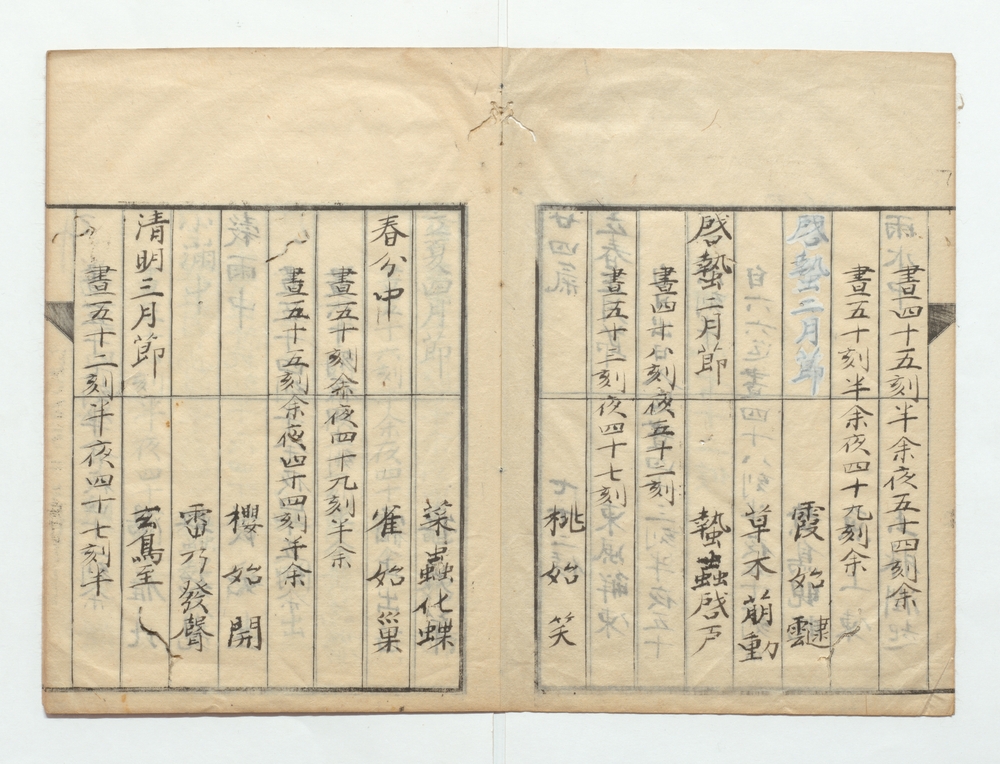 晝四十五刻半余夜五十四刻余
晝五十刻半余夜四十九刻余
霞始靆
草木萠動
啓蟄二月節 蟄蟲啓戸
晝四十八刻夜五十二刻
晝五十三刻夜四十七刻
桃始笑
菜蟲化蝶
春分中 雀始巣
晝五十刻余夜四十九刻半余
晝五十五刻余夜四十四刻半余
櫻始開
雷乃發聲
清明三月節 玄鳥至
晝五十二刻半夜四十七刻半